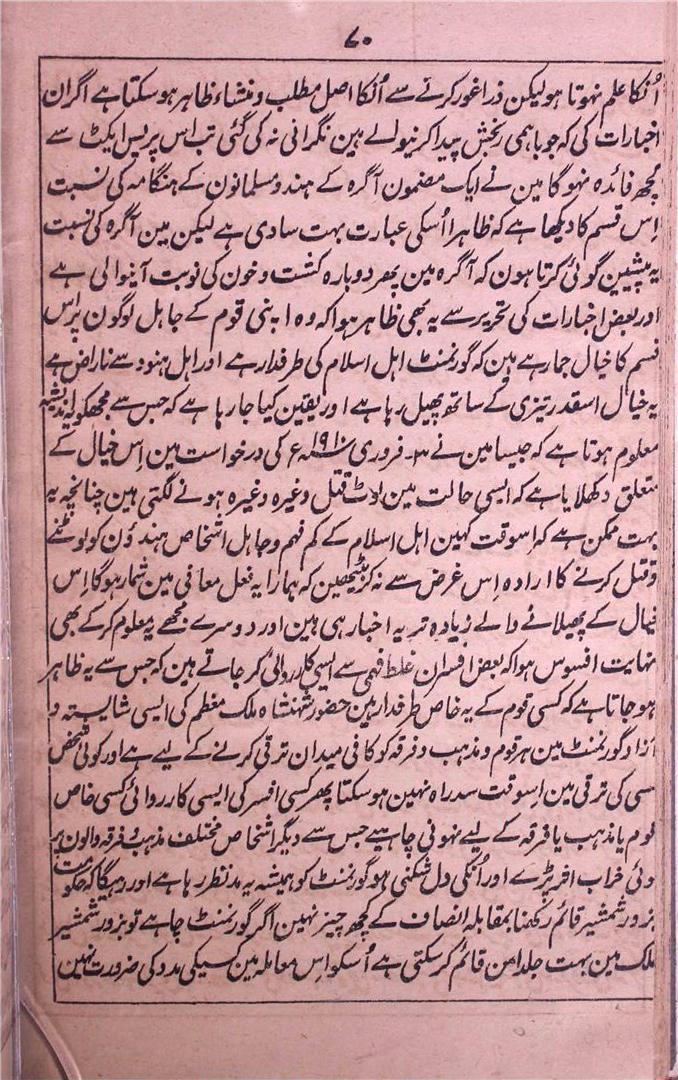 ۷۰
اُنکا علم نہوتا ہو لیکن ذرا غور کرنے سے اُنکا اصل مطلب و منشاء ظاہر ہو سکتا ہے اگر ان
اخبارات کی کہ جو باہمی رنجش پیدا کرنیوالے ہین نگرانی نہ کی گئی تب اس پریس ایکٹ سے
کچھ فائدہ نہو گا مین نے ایک مضمون آگرہ کے ہندو مسلمانون کے ہنگامہ کی نسبت
اِس قسم کا دیکھا ہے کہ ظاہرا اُسکی عبارت بہت سادی ہے لیکن مین آگرہ کی نسبت
یہ پیشین گوئی کرتا ہون کہ آگرہ مین پھر دوبارہ کشت و خون کی نوبت آنیوالی ہے
اور بعض اخبارات کی تحریر سے یہ بھی ظاہر ہوا کہ وہ اپنی قوم کے جاہل لوگون پر اس
قسم کا خیال جما رہے ہین کہ گورنمنٹ اہل اسلام کی طرفدار ہے اور اہل ہنود سے ناراض ہے
یہ خیال اسقدر تیزی کے ساتھ پھیل رہا ہے اور یقین کیا جا رہا ہے کہ جس سے مجھکو یہ اندیشہ
معلوم ہوتا ہے کہ جیسا مین نے ۳۔ فروری ۱۹۱۰ء کی درخواست مین اِس خیال کے
متعلق دکھلایا ہے کہ ایسی حالت مین لوٹ قتل وغیرہ وغیرہ ہونے لگتی ہین چنانچہ یہ
بہت ممکن ہے کہ اسوقت کہین اہل اسلام کے کم فہم و جاہل اشخاص ہندؤن کو لوٹنے
و قتل کرنے کا ارادہ اِس غرض سے نہ کر بیٹھین کہ ہمارا یہ فعل معافی مین شمار ہوگا اِس
خیال کے پھیلانے والے زیادہ تر یہ اخبار ہی ہین اور دوسرے مجھے یہ معلوم کر کے بھی
نہایت افسوس ہوا کہ بعض افسران غلط فہمی سے ایسی کارروائی کر جاتے ہین کہ جس سے یہ ظاہر
ہو جاتا ہے کہ کسی قوم کے یہ خاص طرفدار ہین حضور شہنشاہ ملک معظم کی ایسی شایستہ و
آزاد گورنمنٹ مین ہر قوم و مذہب و فرقہ کو کافی میدان ترقی کرنے کے لیے ہے اور کوئی شخص
کسی کی ترقی مین اِسوقت سد راہ نہین ہو سکتا پھر کسی افسر کی ایسی کارروائی کسی خاص
قوم یا مذہب یا فرقہ کے لیے نہونی چاہیے جس سے دیگر اشخاص مختلف مذہب و فرقہ والون پر
کوئی خراب اثر پڑے اور اُنکی دل شکنی ہو گورنمنٹ کو ہمیشہ یہ مد نظر رہا ہے اور رہیگا کہ حکومت
بزور شمشیر قائم رکھنا بمقابلہ انصاف کے کچھ چیز نہین اگر گورنمنٹ چاہے تو بزور شمشیر
ملک مین بہت جلد امن قائم کر سکتی ہے اُسکو اِس معاملہ مین کسیکی مدد کی ضرورت نہین